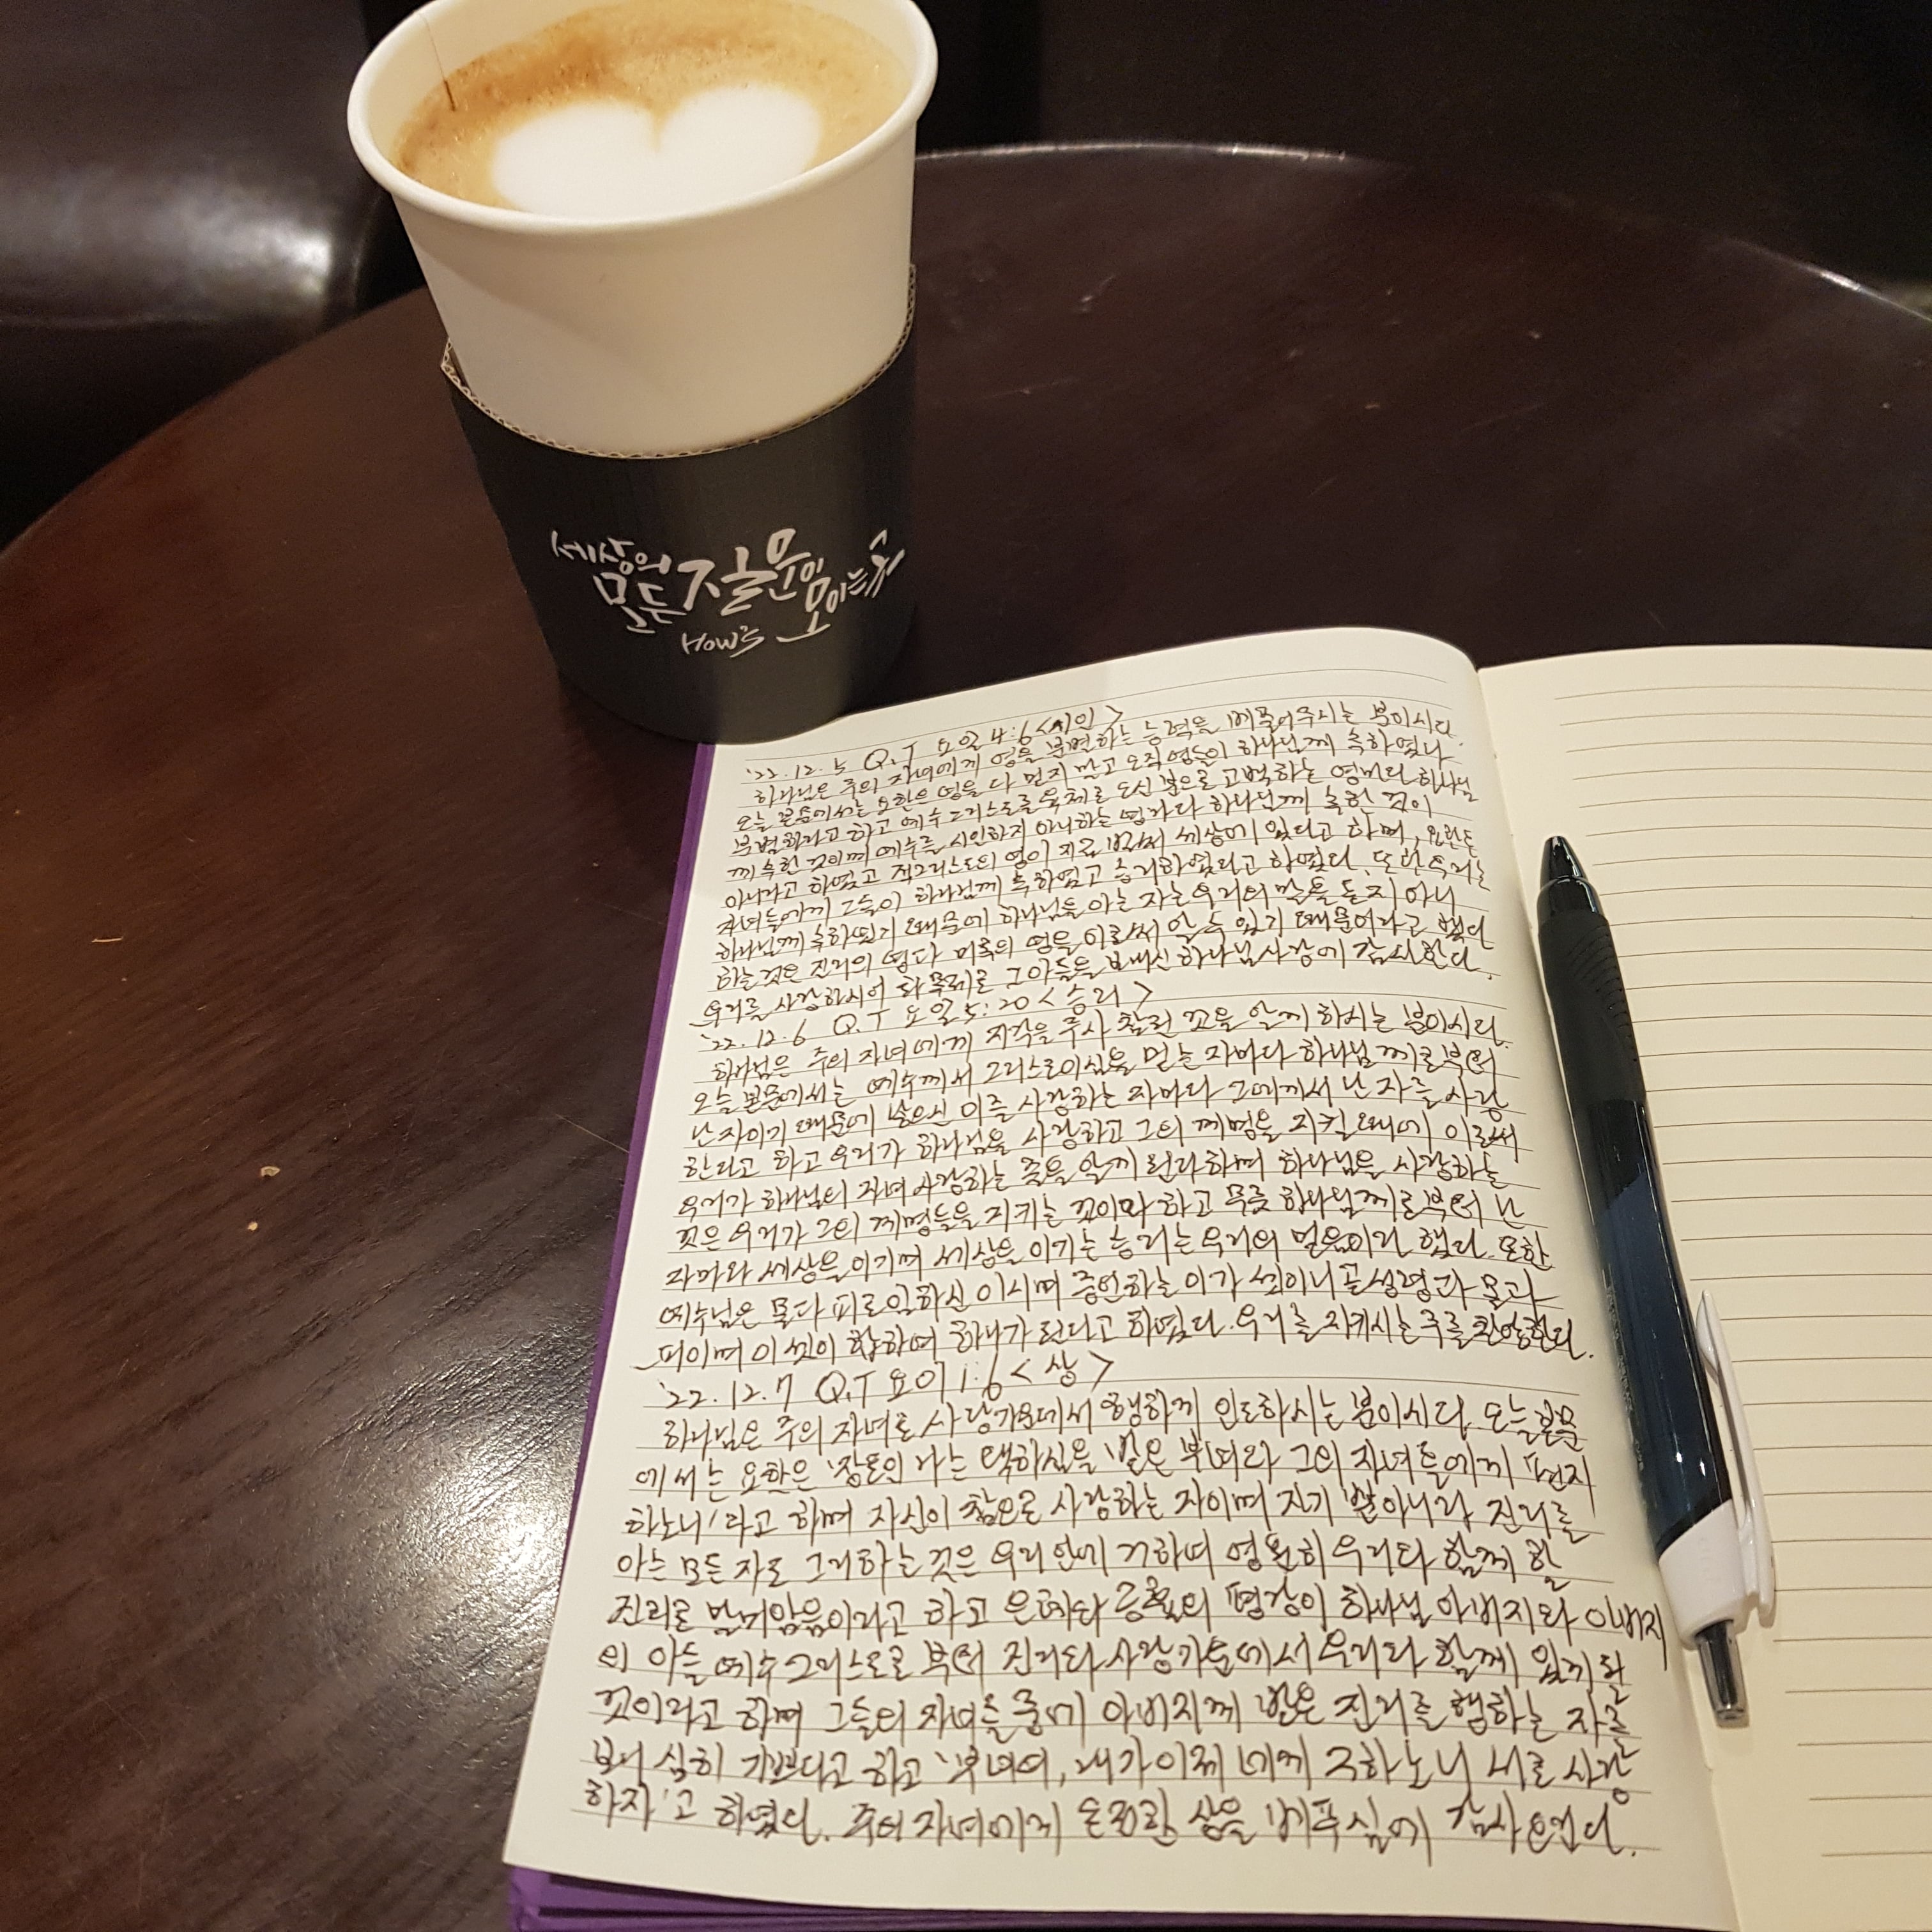 세상의
모든 질문이
모이는 곳
HOW's
'22.12.5 Q.T 요일 4:6 <시인>
하나님은 주의 자녀에게 영을 분별하는 능력을 베풀어주시는 분이시다.
오늘 본문에서는 요한은 영을 다 믿지 말고 오직 영들이 하나님께 속하였나
분별하라고 하고 예수 그리스도를 육체로 오신 분으로 고백하는 영마다 하나님
께 속한 것이며 예수를 시인하지 아니하는 영마다 하나님께 속한 것이
아니라고 하였고 적그리스도의 영이 지금 벌써 세상에 있다고 하며, 요한은
자녀들에게 그들이 하나님께 속하였고 승리하였다고 하였다. 또한 우리는
하나님께 속하였기 때문에 하나님을 아는 자는 우리의 말을 듣지 아니
하는 것은 진리의 영과 미혹의 영을 이로써 알 수 있기 때문이라고 했다
우리를 사랑하시어 화목제로 그 아들을 보내신 하나님 사랑에 감사한다.
'22.12.6 Q.T 요일 5:20 <승리>
하나님은 주의 자녀에게 지각을 주사 참된 것을 알게 하시는 분이시다.
오늘 본문에서는 예수께서 그리스도이심을 믿는 자마다 하나님께로부터
난 자이기 때문에 낳으신 이를 사랑하는 자마다 그에게서 난 자를 사랑
한다고 하고 우리가 하나님을 사랑하고 그의 계명을 지킬 때에 이로써
우리가 하나님의 자녀 사랑하는 줄을 알게 된다 하며 하나님을 사랑하는
것은 우리가 그의 계명들을 지키는 것이라 하고 무릇 하나님께로부터 난
자마다 세상을 이기며 세상을 이기는 승리는 우리의 믿음이라 했다. 또한
예수님은 물과 피로 임하신 이시며 증언하는 이가 셋이니 곧 성령과 물과
피이며 이 셋이 합하여 하나가 된다고 하였다. 우리를 지키시는 주를 찬양한다.
'22.12.7 Q.T 요이 1:6 <상>
하나님은 주의 자녀로 사랑가운데서 행하게 인도하시는 분이시다. 오늘 본문
에서는 요한은 '장로인 나는 택하심을 받은 부녀와 그의 자녀들에게 편지
하노니'라고 하며 자신이 참으로 사랑하는 자이며 자기 뿐아니라 진리를
아는 모든 자도 그리하는 것은 우리 안에 거하며 영원히 우리와 함께 할
진리로 말미암음이라고 하고 은혜와 긍휼의 평강이 하나님 아버지와 아버지
의 아들 예수 그리스도로 부터 진리와 사랑가운데서 우리와 함께 있게 될
것이라고 하며 그들의 자녀들 중에 아버지께 받은 진리를 행하는 자를
보니 심히 기쁘다고 하고 '부녀여, 내가 이제 네게 구하노니 서로 사랑
하자'고 하였다. 주의 자녀에게 온전한 상을 베푸심에 감사한다.